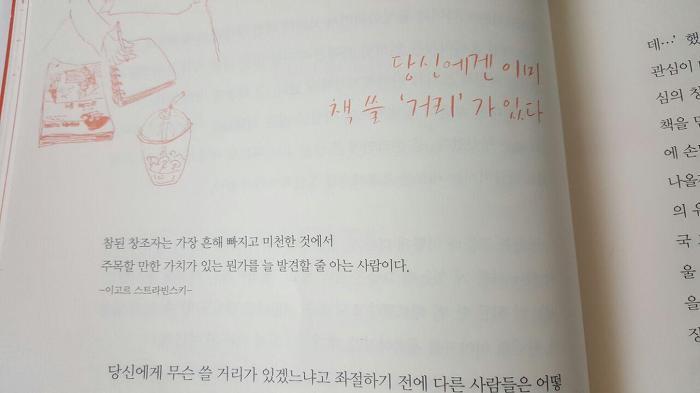 당신에겐 이미
책 쓸 '거리'가 있다
참된 창조자는 가장 흔해 빠지고 미천한 것에서
주목할 만한 가치가 있는 뭔가를 늘 발견할 줄 아는 사람이다.
-이고르 스트라빈스키-
당신에게 무슨 쓸 거리가 있겠느냐고 좌절하기 전에 다른 사람들은 어떻
데…’ 했
관심이
심의 창
책을 만
에 손
나올
의 우
국
울
을